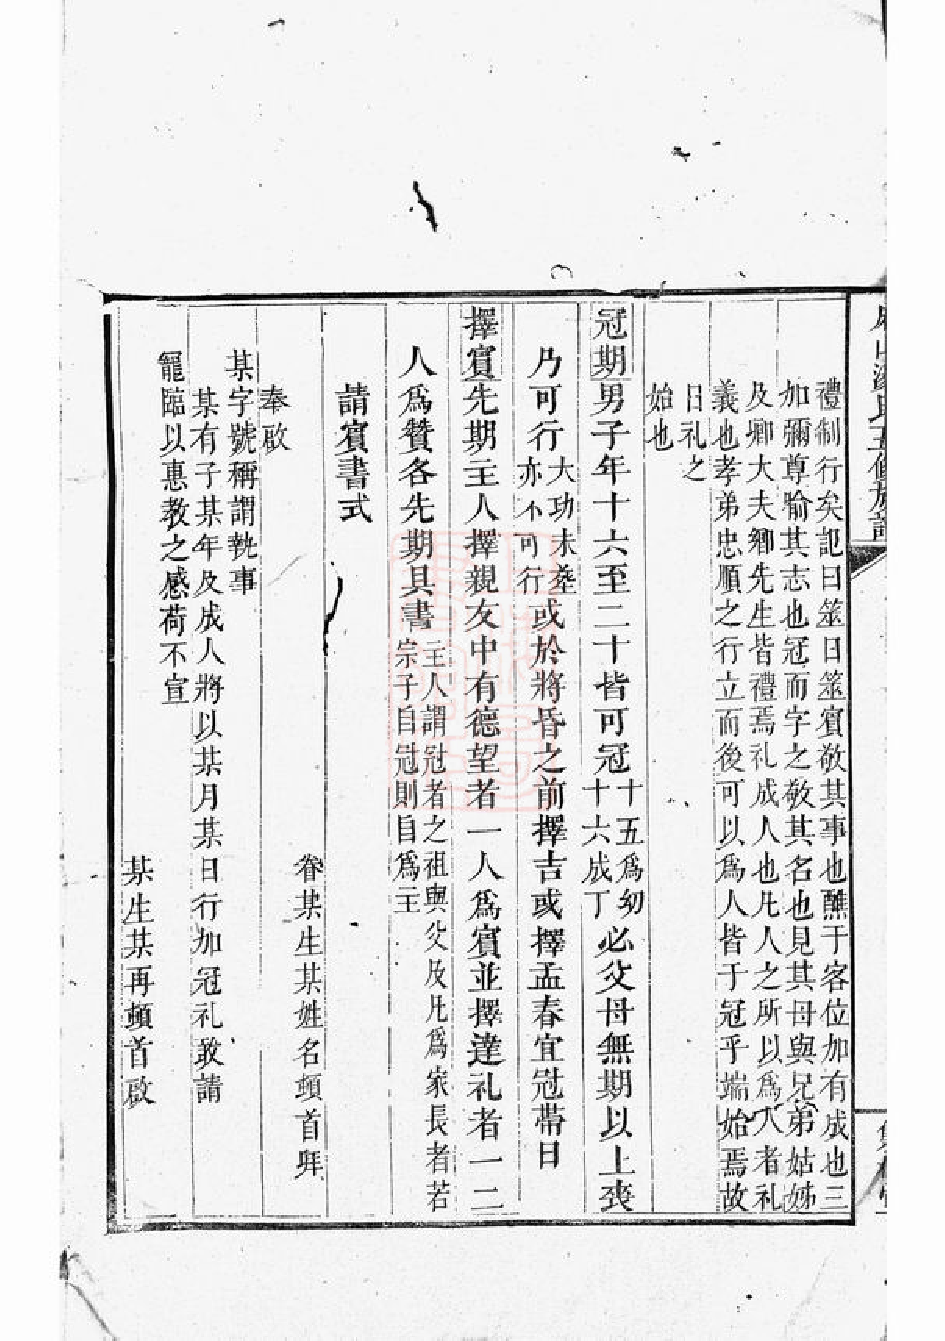 禮制行矣記曰筮日筮賓敬其事也醮于客位加有成也三
加彌尊喻其志也冠而字之敬其名也見其母與兄弟姑姊
及卿大夫鄉先生皆禮焉礼成人也凡人之所以為人者礼
義也孝弟忠順之行立而後可以為人皆于冠乎端始焉故
曰礼之
始也
冠期男子年十六至二十皆可冠十五為幼十六成丁必父母無期以上喪
乃可行大功未葬亦不可行或於將昏之前擇吉或擇孟春宜冠帶日
擇賓先期主人擇親友中有德望者一人為賓並擇達礼者一二
人為贊各先期具書主人謂冠者之祖與父及凡為家長者若宗子自冠則自為主
請賓書式
眷某生某姓名頓首拜
奉啟
某字號稱謂執事
某有子某年及成人將以某月某日行加冠礼敢請
寵臨以惠教之感荷不宣
某生某再頓首啟